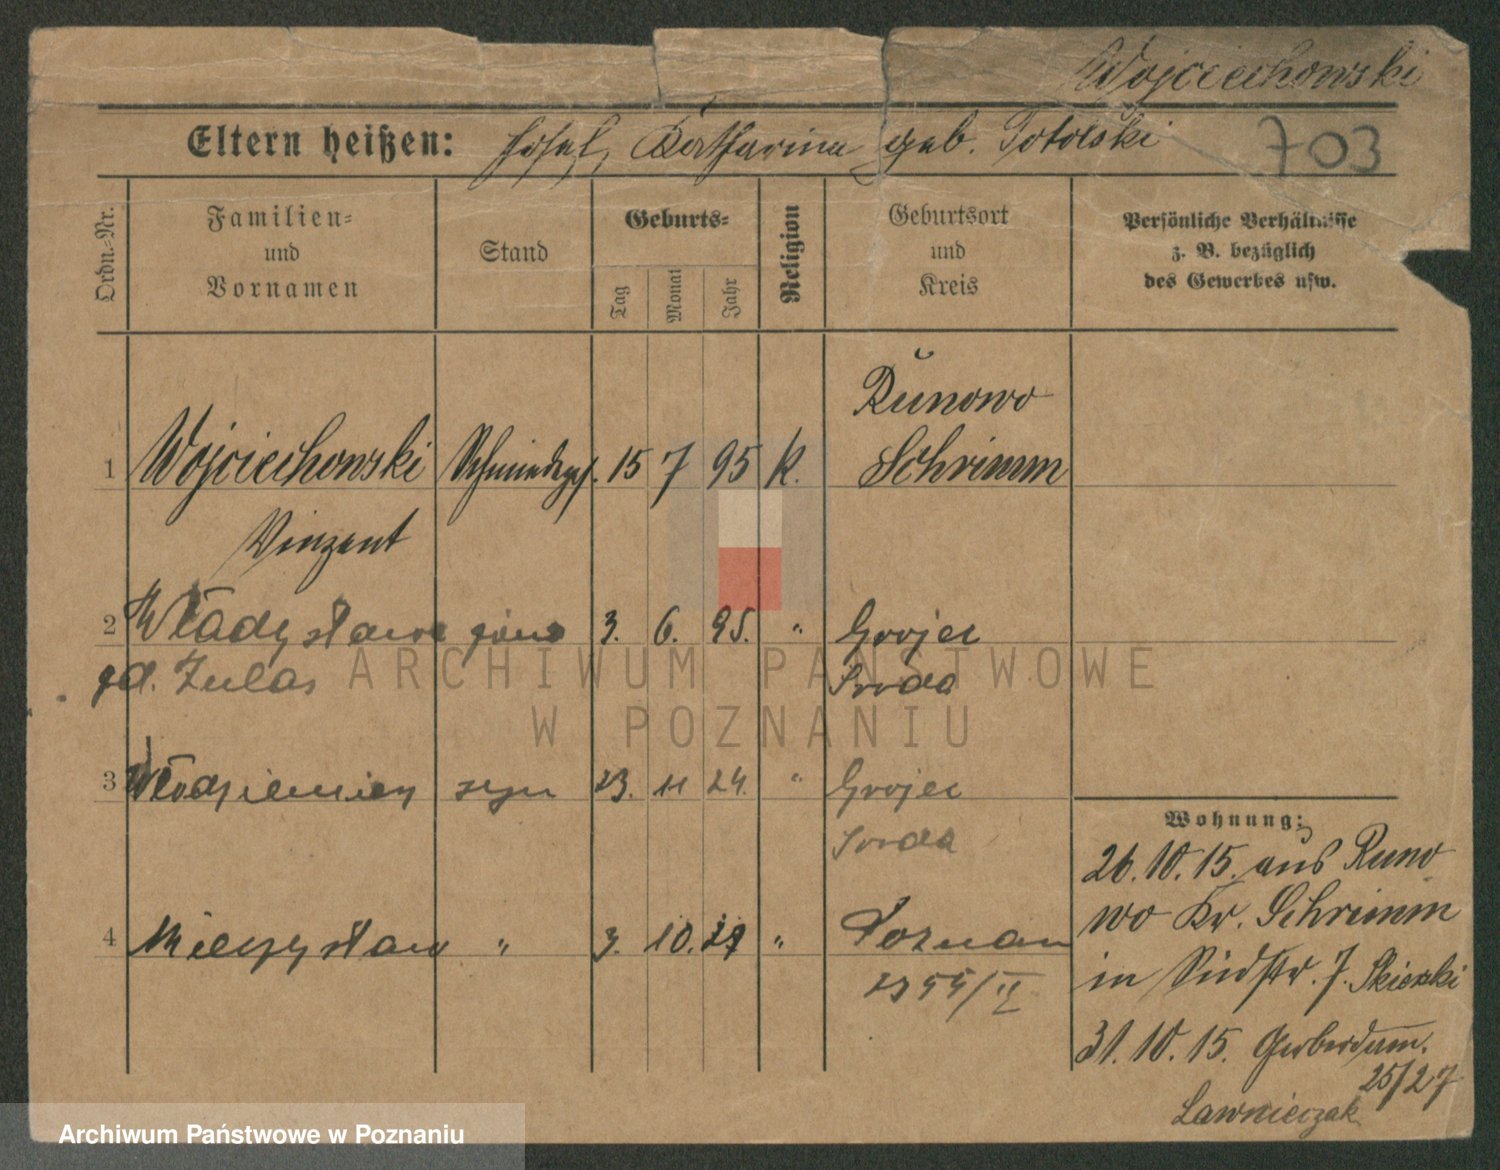 Wojciechowski
Eltern heißen: Josef, Katharina geb. Potolski 703
Ordn.=Nr.
Familien=
und
Vornamen
Stand
Geburts=
Tag
Monat
Jahr
Religion
Geburtsort
und
Kreis
Persönliche Verhältnisse
z. B. bezüglich
des Gewerbes usw.
Runowo
1 Wojciechowski Schmiedeges. 15 7 95 k. Schrimm
Vinzent
2 Władysława żona 3. 6. 95. " Grojec
gd. Zulas Środa
3 Włodzimierz syn 23. 11 24. " Grojec
Środa
4 Mieczysław " 3. 10. 27 " Poznań
2755/II
Wohnung:
26.10.15. aus Runo
wo Kr. Schrimm
in Südstr. 7. Skierski
31.10.15. Gerberdamm.
25/27
Lawniczak
ARCHIWUM PAŃSTWOWE
W POZNANIU
Archiwum Państwowe w Poznaniu